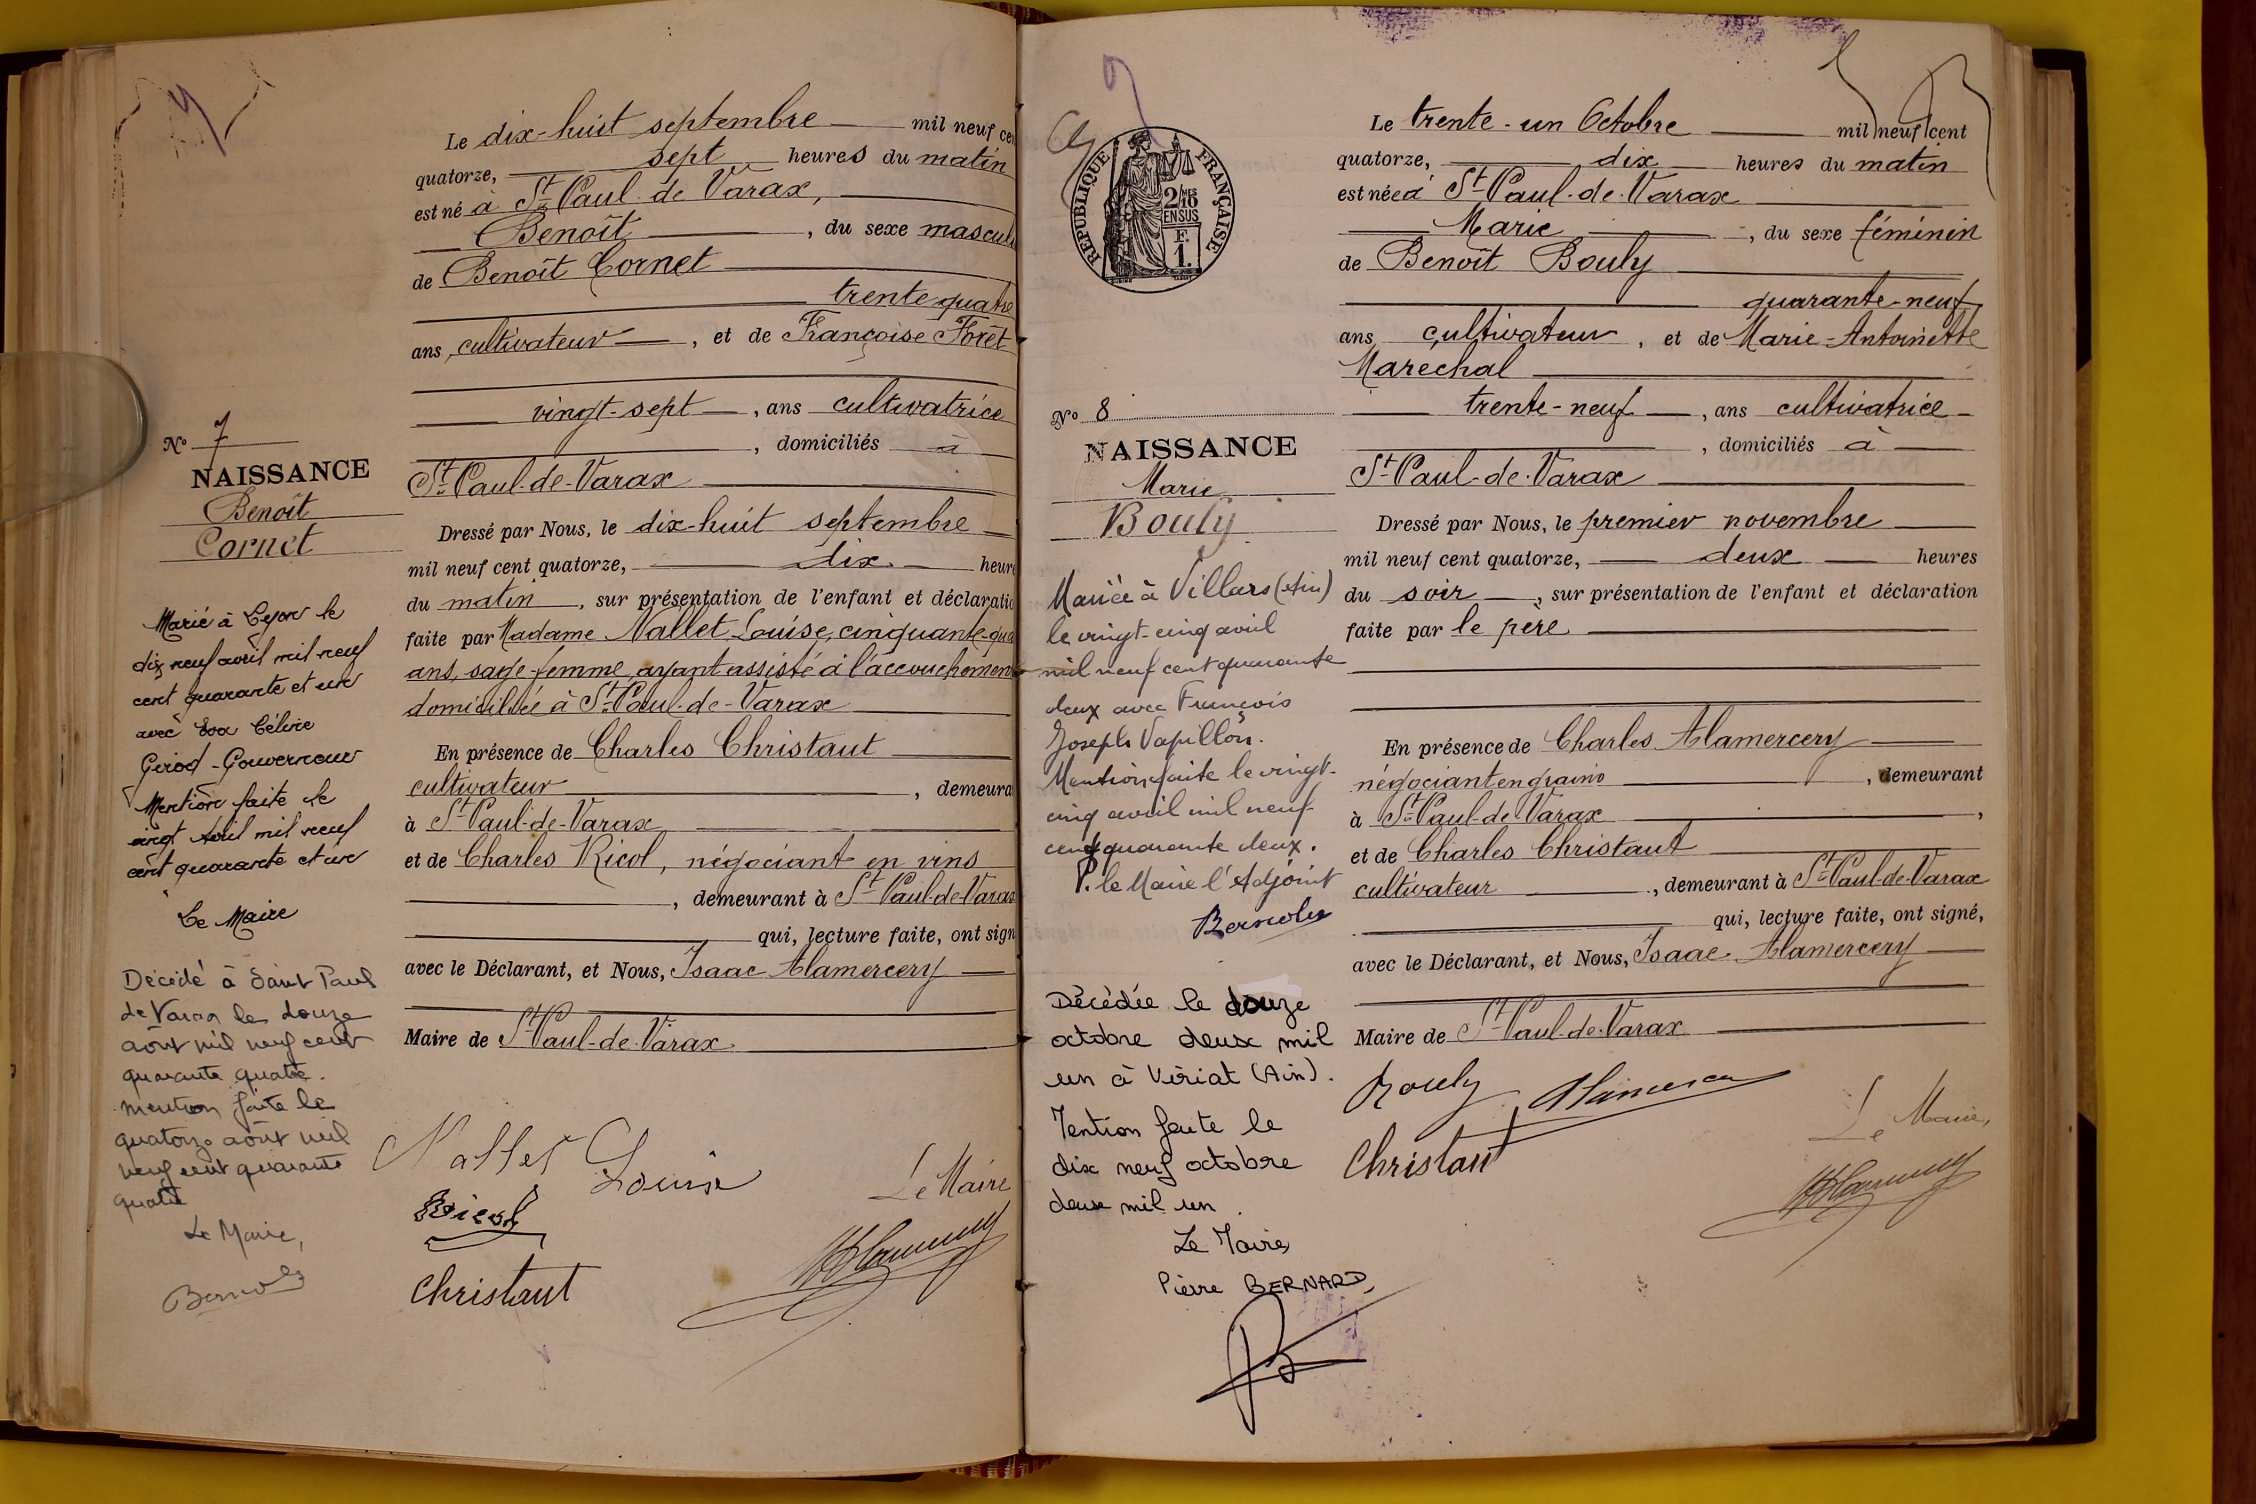 Le dix-huit septembre mil neuf cen
quatorze, sept heures du matin
est né à St Paul-de-Varax,
Benoît, du sexe mascul
de Benoît Cornet
trente quatre
ans, cultivateur, et de Françoise Forêt
vingt-sept, ans cultivatrice
, domiciliés à
St Paul-de-Varax
No 7
NAISSANCE
Benoît
Cornet
Dressé par Nous, le dix-huit septembre
mil neuf cent quatorze, dix heure
du matin, sur présentation de l'enfant et déclaratio
faite par Madame Nallet Louise, cinquante-qua
ans, sage-femme, ayant assisté à l'accouchement
domiciliée à St Paul-de-Varax
En présence de Charles Christaut
cultivateur, demeura
à St Paul-de-Varax
et de Charles Ricol, négociant en vins
, demeurant à St Paul-de-Varax
qui, lecture faite, ont sign
avec le Déclarant, et Nous, Isaac Alamercery
Maire de St Paul-de-Varax
Marié à Lyon le
dix neuf avril mil neuf
cent quarante et un
avec Eva Céline
Girod-Gouverneur
Mention faite le
vingt Avril mil neuf
cent quarante et un
Le Maire
Décédé à Saint Paul
de Varax le douze
août mil neuf cent
quarante quatre.
mention faite le
quatorze août mil
neuf cent quarante
quatre
Le Maire,
Nallet Louise
Ricol
Christaut
Le Maire
RÉPUBLIQUE FRANÇAISE
2/10mes
EN SUS
F.
1.
No 8
NAISSANCE
Marie
Bouly
Mariée à Villars (Ain)
le vingt-cinq avril
mil neuf cent quarante
deux avec François
Joseph Vapillon.
Mention faite le vingt-
cinq avril mil neuf
cent quarante deux.
P. le Maire l'Adjoint
Décédée le douze
octobre deux mil
un à Viriat (Ain).
Mention faite le
dix neuf octobre
deux mil un.
Le Maire,
Pierre BERNARD,
Le trente-un Octobre mil neuf cent
quatorze, dix heures du matin
est née à St Paul-de-Varax
Marie, du sexe féminin
de Benoît Bouly
quarante-neuf
ans cultivateur, et de Marie-Antoinette
Marechal
trente-neuf, ans cultivatrice
, domiciliés à
St Paul-de-Varax
Dressé par Nous, le premier novembre
mil neuf cent quatorze, deux heures
du soir, sur présentation de l'enfant et déclaration
faite par le père
En présence de Charles Alamercery
négociant en grains, demeurant
à St Paul-de-Varax,
et de Charles Christaut
cultivateur, demeurant à St Paul-de-Varax
qui, lecture faite, ont signé,
avec le Déclarant, et Nous, Isaac Alamercery
Maire de St Paul-de-Varax
Bouly
Christaut
Le Maire,